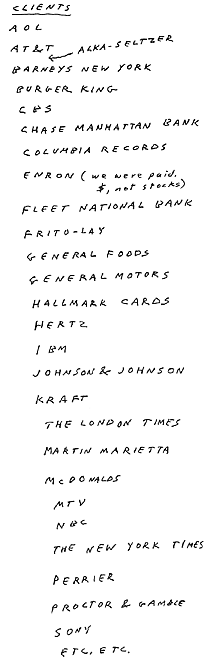 CLIENTS
AOL
AT&T
ALKA-SELTZER
BARNEYS NEW YORK
BURGER KING
CBS
CHASE MANHATTAN BANK
COLUMBIA RECORDS
ENRON (we were paid.
$, not stocks)
FLEET NATIONAL BANK
FRITO-LAY
GENERAL FOODS
GENERAL MOTORS
HALLMARK CARDS
HERTZ
IBM
JOHNSON & JOHNSON
KRAFT
THE LONDON TIMES
MARTIN MARIETTA
McDONALDS
MTV
NBC
THE NEW YORK TIMES
PERRIER
PROCTOR & GAMBLE
SONY
ETC, ETC.